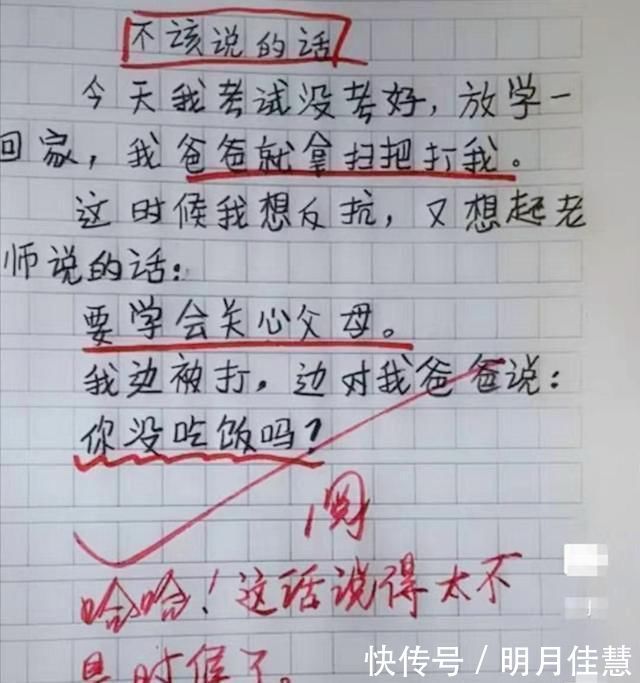 不该说的话
今天我考试没考好，放学一
回家，我爸爸就拿扫把打我。
这时候我想反抗，又想起老
师说的话：
要学会关心父母。
我边被打，边对我爸爸说：
你没吃饭吗？
阅
哈哈！这话说得太不
是时候了。
快传号／明月佳慧